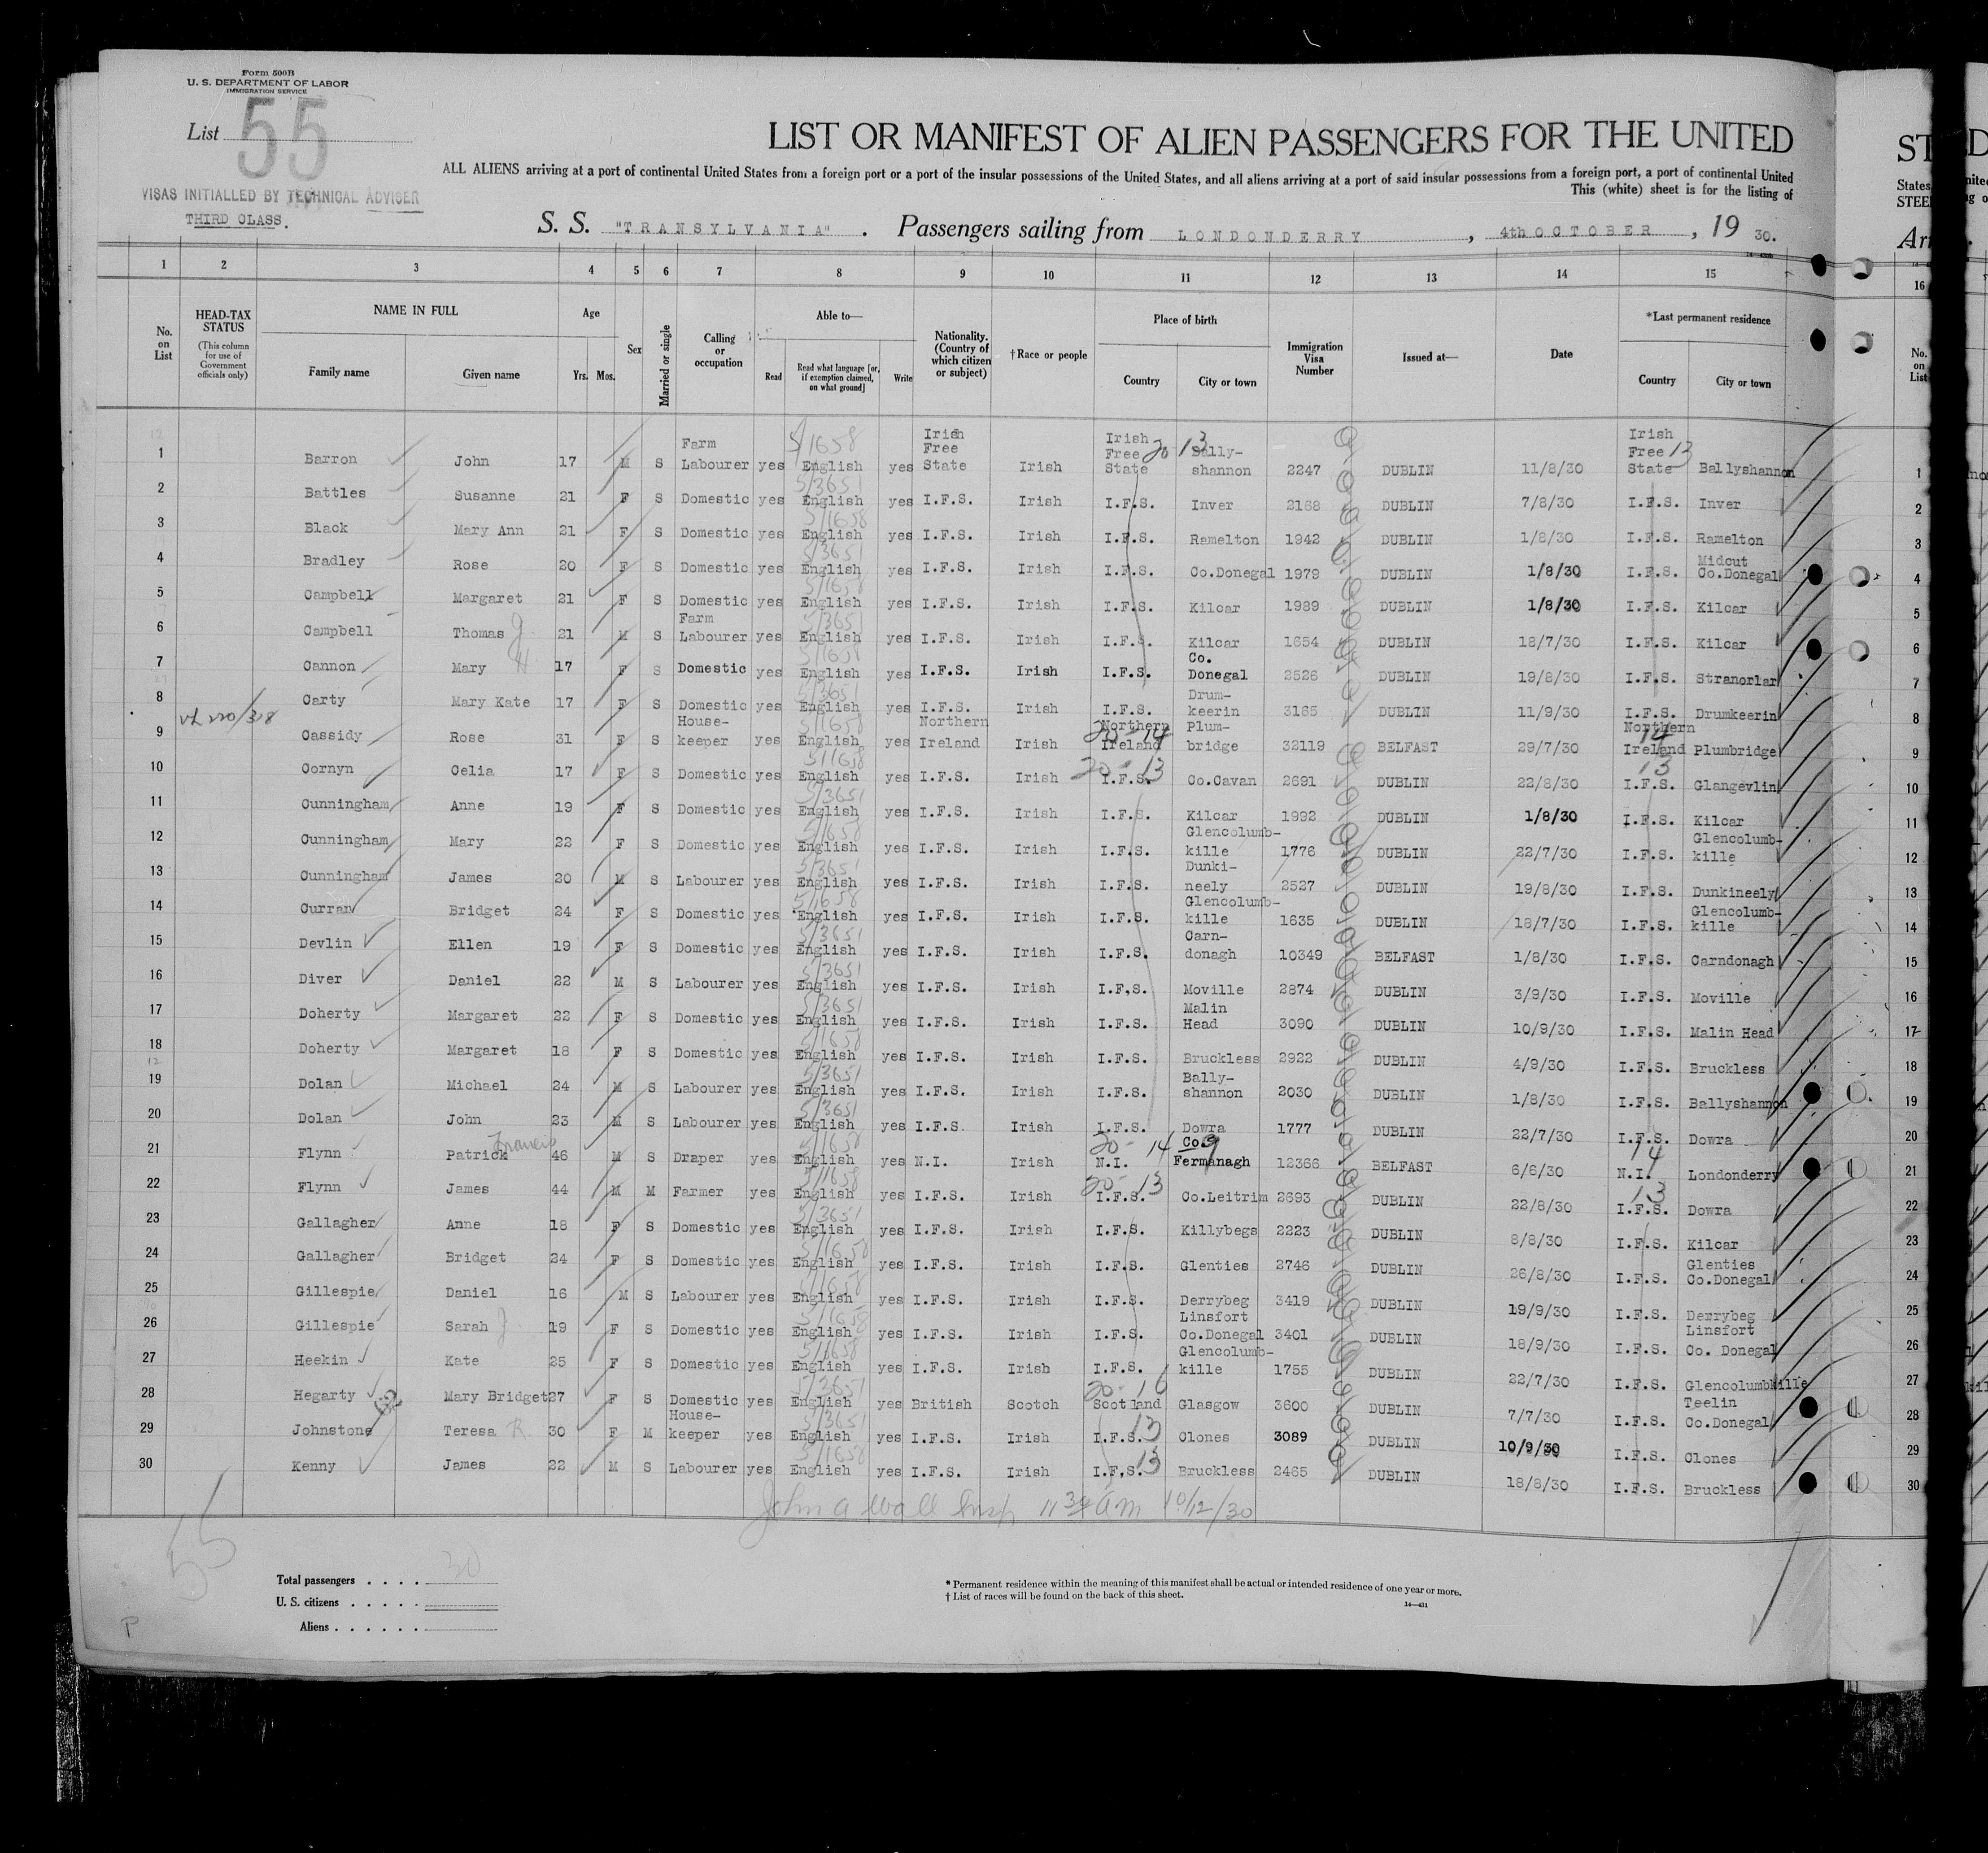 Form 500B
U. S. DEPARTMENT OF LABOR
IMMIGRATION SERVICE
List 55
VISAS INITIALLED BY TECHNICAL ADVISER
THIRD CLASS.
LIST OR MANIFEST OF ALIEN PASSENGERS FOR THE UNITED
ALL ALIENS arriving at a port of continental United States from a foreign port or a port of the insular possessions of the United States, and all aliens arriving at a port of said insular possessions from a foreign port, a port of continental United
This (white) sheet is for the listing of
S. S. "TRANSYLVANIA". Passengers sailing from LONDONDERRY, 4th OCTOBER, 1930.
1 2 3 4 5 6 7 8 9 10 11 12 13 14 15
No. on List
HEAD-TAX STATUS (This column for use of Government officials only)
NAME IN FULL
Family name Given name
Age
Yrs. Mos.
Sex
Married or single
Calling or occupation
Able to—
Read
Read what language [or, if exemption claimed, on what ground]
Write
Nationality. (Country of which citizen or subject)
†Race or people
Place of birth
Country City or town
Immigration Visa Number
Issued at—
Date
*Last permanent residence
Country City or town
1 Barron John 17 M S Farm Labourer yes English yes Irish Free State Irish Irish Free State Bally-shannon 2247 DUBLIN 11/8/30 Irish Free State Ballyshannon
2 Battles Susanne 21 F S Domestic yes English yes I.F.S. Irish I.F.S. Inver 2168 DUBLIN 7/8/30 I.F.S. Inver
3 Black Mary Ann 21 F S Domestic yes English yes I.F.S. Irish I.F.S. Ramelton 1942 DUBLIN 1/8/30 I.F.S. Ramelton
4 Bradley Rose 20 F S Domestic yes English yes I.F.S. Irish I.F.S. Co.Donegal 1979 DUBLIN 1/8/30 I.F.S. Midcut Co.Donegal
5 Campbell Margaret 21 F S Domestic yes English yes I.F.S. Irish I.F.S. Kilcar 1989 DUBLIN 1/8/30 I.F.S. Kilcar
6 Campbell Thomas J. 21 M S Farm Labourer yes English yes I.F.S. Irish I.F.S. Kilcar 1654 DUBLIN 18/7/30 I.F.S. Kilcar
7 Cannon Mary H. 17 F S Domestic yes English yes I.F.S. Irish I.F.S. Co. Donegal 2526 DUBLIN 19/8/30 I.F.S. Stranorlar
8 Carty Mary Kate 17 F S Domestic yes English yes I.F.S. Irish I.F.S. Drum-keerin 3165 DUBLIN 11/9/30 I.F.S. Drumkeerin
9 Cassidy Rose 31 F S House-keeper yes English yes Northern Ireland Irish Northern Ireland Plum-bridge 32119 BELFAST 29/7/30 Northern Ireland Plumbridge
10 Cornyn Celia 17 F S Domestic yes English yes I.F.S. Irish I.F.S. Co.Cavan 2691 DUBLIN 22/8/30 I.F.S. Glangevlin
11 Cunningham Anne 19 F S Domestic yes English yes I.F.S. Irish I.F.S. Kilcar 1992 DUBLIN 1/8/30 I.F.S. Kilcar
12 Cunningham Mary 22 F S Domestic yes English yes I.F.S. Irish I.F.S. Glencolumb-kille 1776 DUBLIN 22/7/30 I.F.S. Glencolumb-kille
13 Cunningham James 20 M S Labourer yes English yes I.F.S. Irish I.F.S. Dunki-neely 2527 DUBLIN 19/8/30 I.F.S. Dunkineely
14 Curran Bridget 24 F S Domestic yes English yes I.F.S. Irish I.F.S. Glencolumb-kille 1635 DUBLIN 18/7/30 I.F.S. Glencolumb-kille
15 Devlin Ellen 19 F S Domestic yes English yes I.F.S. Irish I.F.S. Carn-donagh 10349 BELFAST 1/8/30 I.F.S. Carndonagh
16 Diver Daniel 22 M S Labourer yes English yes I.F.S. Irish I.F.S. Moville 2874 DUBLIN 3/9/30 I.F.S. Moville
17 Doherty Margaret 22 F S Domestic yes English yes I.F.S. Irish I.F.S. Malin Head 3090 DUBLIN 10/9/30 I.F.S. Malin Head
18 Doherty Margaret 18 F S Domestic yes English yes I.F.S. Irish I.F.S. Bruckless 2922 DUBLIN 4/9/30 I.F.S. Bruckless
19 Dolan Michael 24 M S Labourer yes English yes I.F.S. Irish I.F.S. Bally-shannon 2030 DUBLIN 1/8/30 I.F.S. Ballyshannon
20 Dolan John 23 M S Labourer yes English yes I.F.S. Irish I.F.S. Dowra 1777 DUBLIN 22/7/30 I.F.S. Dowra
21 Flynn Patrick Francis 46 M S Draper yes English yes N.I. Irish N.I. Co. Fermanagh 12366 BELFAST 6/6/30 N.I. Londonderry
22 Flynn James 44 M M Farmer yes English yes I.F.S. Irish I.F.S. Co.Leitrim 2693 DUBLIN 22/8/30 I.F.S. Dowra
23 Gallagher Anne 18 F S Domestic yes English yes I.F.S. Irish I.F.S. Killybegs 2223 DUBLIN 8/8/30 I.F.S. Kilcar
24 Gallagher Bridget 24 F S Domestic yes English yes I.F.S. Irish I.F.S. Glenties 2746 DUBLIN 26/8/30 I.F.S. Glenties Co.Donegal
25 Gillespie Daniel 16 M S Labourer yes English yes I.F.S. Irish I.F.S. Derrybeg 3419 DUBLIN 19/9/30 I.F.S. Derrybeg
26 Gillespie Sarah J. 19 F S Domestic yes English yes I.F.S. Irish I.F.S. Linsfort Co.Donegal 3401 DUBLIN 18/9/30 I.F.S. Linsfort Co. Donegal
27 Heekin Kate 25 F S Domestic yes English yes I.F.S. Irish I.F.S. Glencolumb-kille 1755 DUBLIN 22/7/30 I.F.S. Glencolumbkille
28 Hegarty Mary Bridget 27 F S Domestic yes English yes British Scotch Scotland Glasgow 3600 DUBLIN 7/7/30 I.F.S. Teelin Co.Donegal
29 Johnstone Teresa R. 30 F M House-keeper yes English yes I.F.S. Irish I.F.S. Clones 3089 DUBLIN 10/9/30 I.F.S. Clones
30 Kenny James 22 M S Labourer yes English yes I.F.S. Irish I.F.S. Bruckless 2465 DUBLIN 18/8/30 I.F.S. Bruckless
John A Wall Insp 11 30 am 10/12/30
55
Total passengers . . . . 30
U. S. citizens . . . . .
Aliens . . . . . .
* Permanent residence within the meaning of this manifest shall be actual or intended residence of one year or more.
† List of races will be found on the back of this sheet.
14—431
P